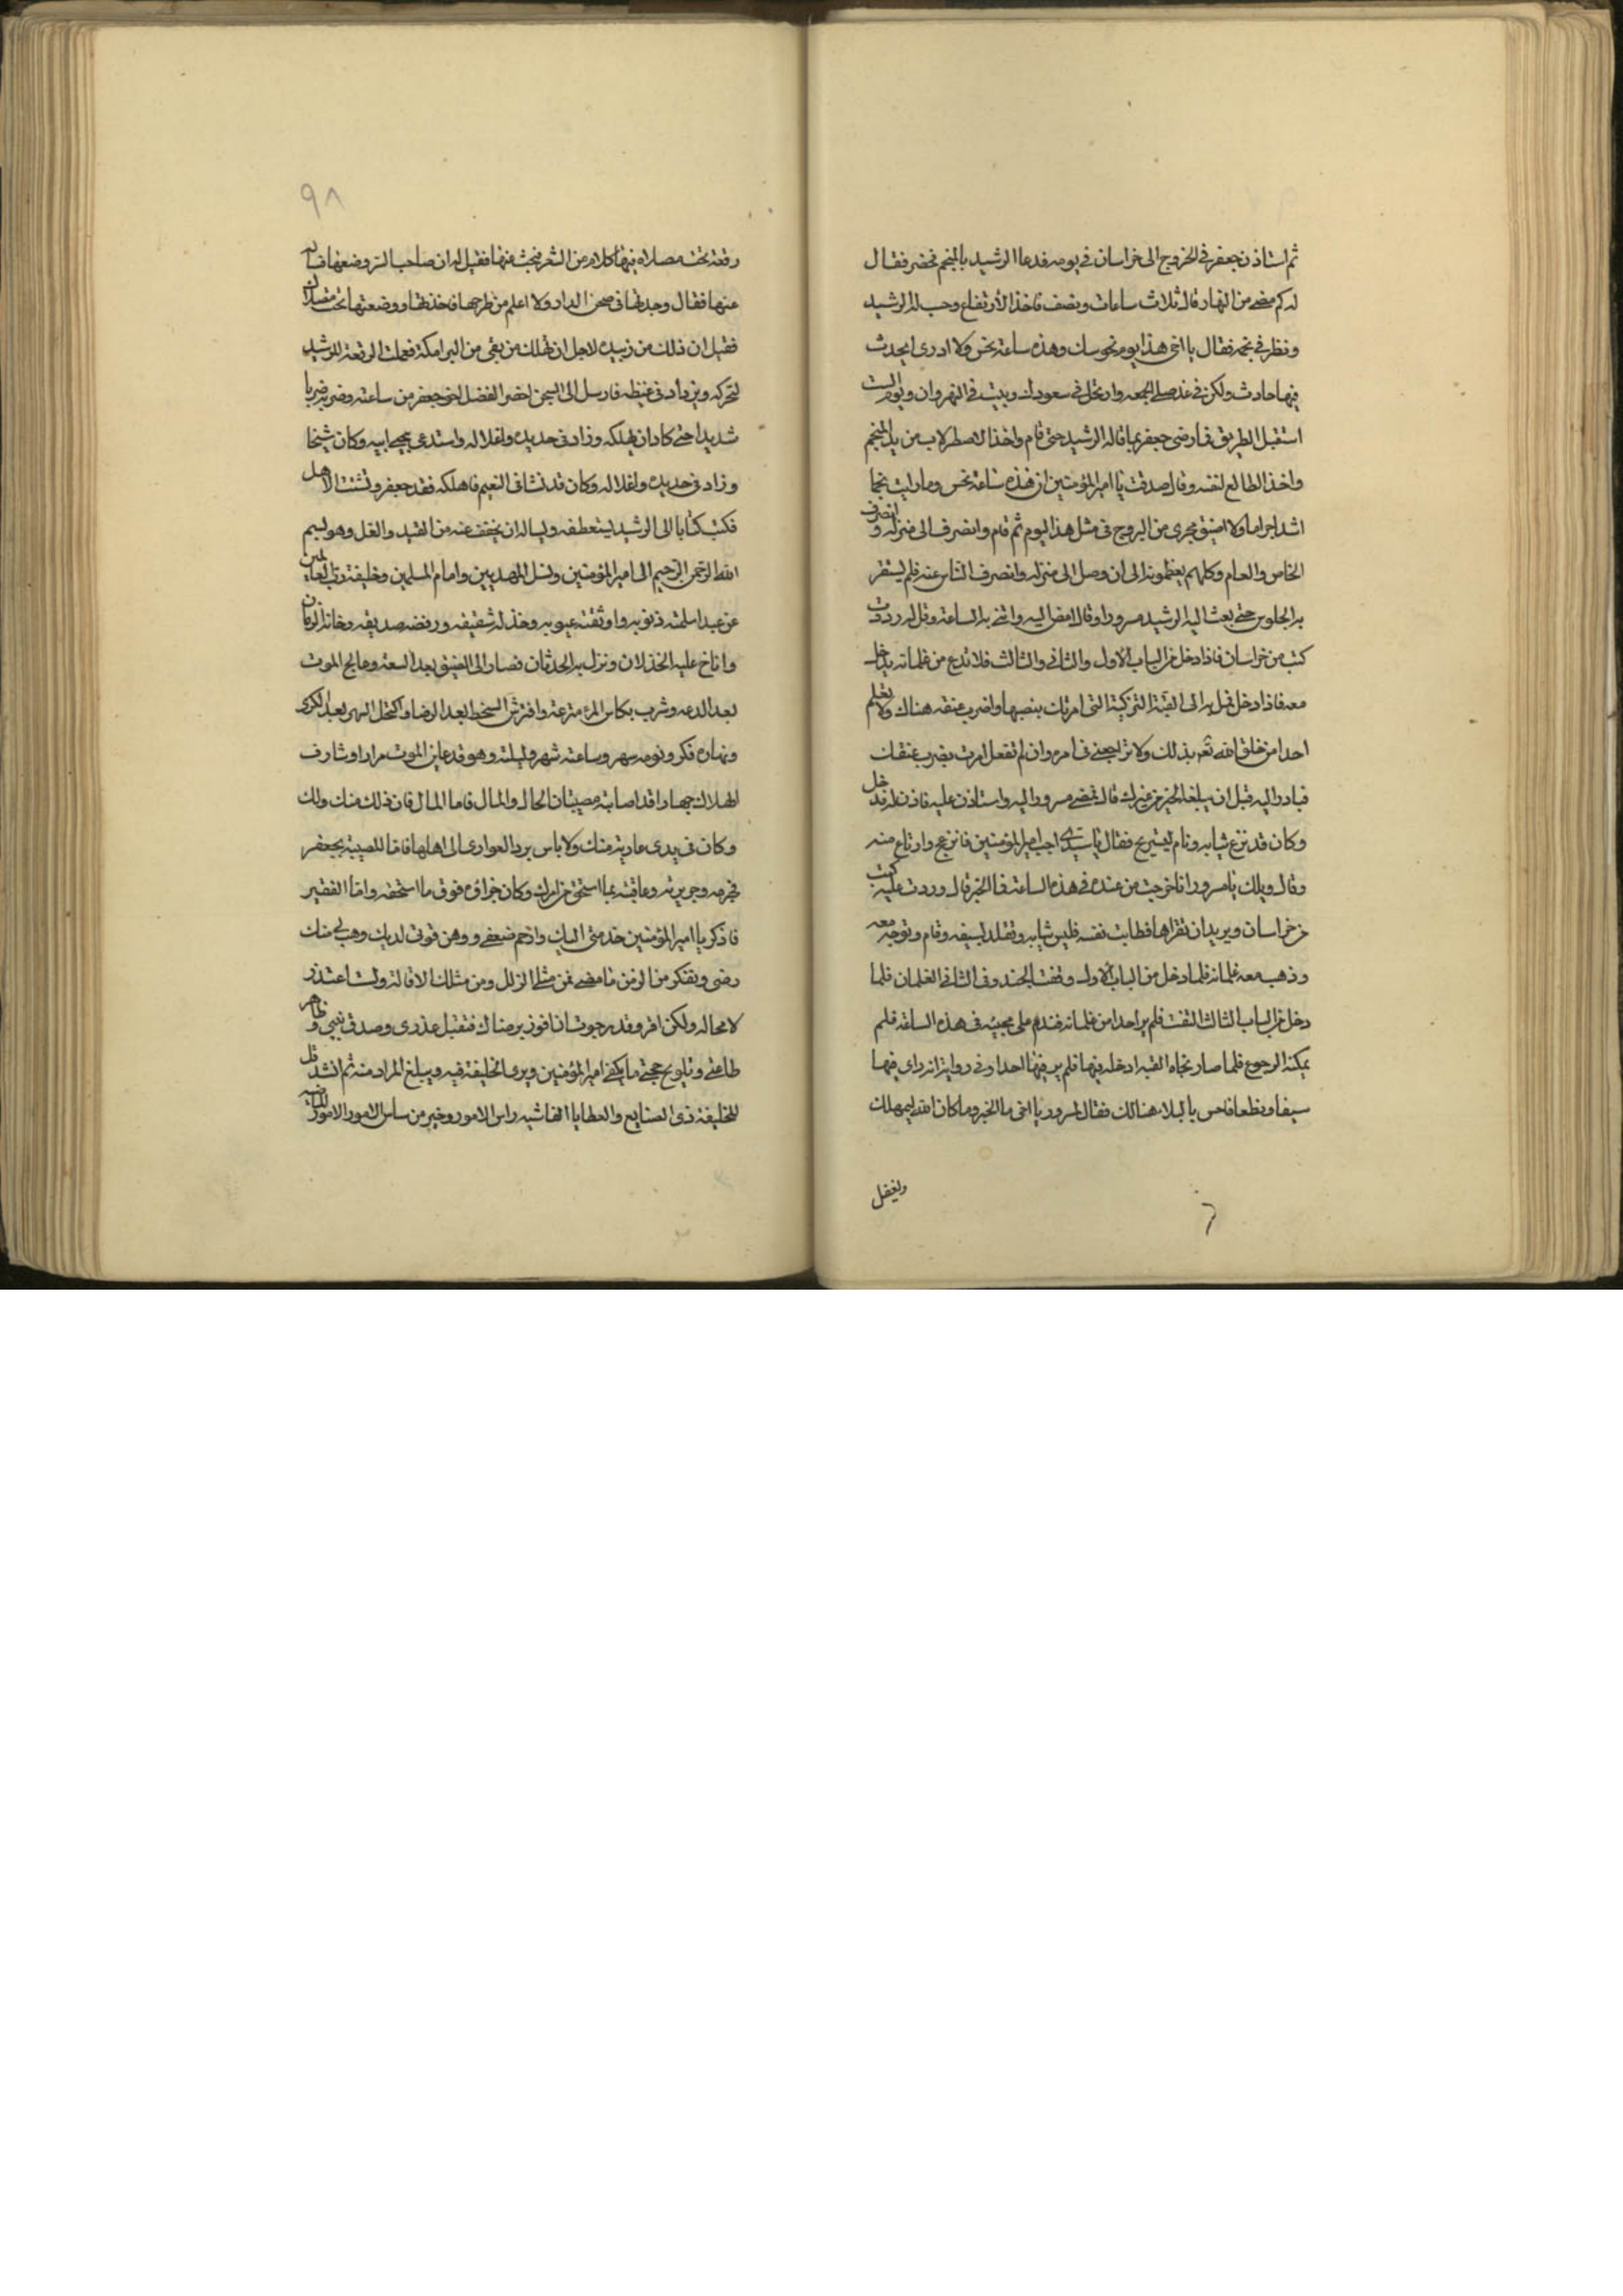 ثم استاذن جعفر فى الخروج الى خراسان فى يومه فدعا الرشيد بالمنجم فحضر فقال
له كم مضى من النهار قال ثلاث ساعات ونصف فاخذ الارتفاع وحسب له الرشيد
ونظر فى نجمه فقال يا اخى هذا يوم نحوسات وهذه ساعة نحس ولا ادرى ايحدث
فيها حادث ولكن فى غد صلى الجمعه وارتحل فى سعودك وبيت فى النهروان ويوم السبت
استقبل الطريق فما رضى جعفر بما قاله الرشيد حتى قام واخذ الاصطرلاب من يد المنجم
واخذ الطالع لنفسه وقال صدقت يا امير المؤمنين ان هذه ساعة نحس وما رايت نجما
اشد احراما ولا اضيق مجرى من البروج فى مثل هذا اليوم ثم قام وانصرف الى منزله وانصرف
الخاص والعام وكلهم يعظمونه الى ان وصل الى منزله وانصرف الناس عنه فلم يستقر
به الجلوس حتى بعث اليه الرشيد مسرورا وقال امض اليه واتنى به الساعة وقل له وردت
كتب من خراسان فاذا دخل من الباب الاول والثانى والثالث فلا تدع من غلمانه يدخل
معه فاذا دخل فمل به الى القبة التركية التى امرتك بنصبها واضرب عنقه هناك ولا تعلم
احدا من خلق الله تع بذلك ولا تراجعنى فى امره وان لم تفعل امرت بضرب عنقك
فبادر اليه قبل ان يبلغه الخبر من غيرك قال فمضى مسرور اليه واستاذن عليه فاذن له فدخل
وكان قد نزع ثيابه ونام ليستريح فقال يا سيدى اجب امير المؤمنين فانزعج وارتاع منه
وقال ويلك يا مسرور انا خرجت من عنده فى هذه الساعة فما الخبر قال وردت عليه كتب
من خراسان ويريد ان تقراها فطابت نفسه فلبس ثيابه وتقلد بسيفه وقام وتوجه معه
وذهب معه غلمانه فلما دخل من الباب الاول وقفت الجند وفى الثانى الغلمان فلما
دخل من الباب الثالث التفت فلم ير احدا من غلمانه فندم على مجيئه فى هذه الساعة فلم
يمكنه الرجوع فلما صار تجاه القبه ادخله فيها فلم ير فيها احدا وفى رواية انه راى فيها
سيفا ونطعا فاحس بالبلاء هنالك فقال لمسرور يا اخى ما الخبر وما كان الله ليمهلك
ويغفل
٩٨
رقعة تحت مصلاه فيها كلام من الشعر فبحث عنها فقيل له ان صاحب الستر وضعها فساله
عنها فقال وجدتها فى صحن الدار ولا اعلم من طرحها فاخذتها ووضعتها تحت مصلاك
فقيل ان ذلك من زبيده لاجل ان تهلك من بقى من البرامكة فعملت الرقعة للرشيد
لتحركه ويزداد فى غيظه فارسل الى السجن احضر الفضل اخى جعفر من ساعته وضربه ضربا
شديدا حتى كاد ان يهلكه وزاد فى حديده واغلاله واستدعى بيحيى ابيه وكان شيخا
وزاد فى حديده واغلاله وكان قد نشا فى النعيم فاهلكه فقد جعفر وتشتت الاهل
فكتب كتابا الى الرشيد يستعطفه ويساله ان يخفف عنه من القيد والغل وهو بسم
الله الرحمن الرحيم الى امير المؤمنين ونسل المهديين وامام المسلمين وخليفة رب العالمين
من عبد اسلمته ذنوبه واوثقته عيوبه وخذله شقيقه ورفضه صديقه وخانه الزمان
واناخ عليه الخذلان ونزل به الحدثان فصار الى الضيق بعد السعة وعالج الموت
بعد الدعه وشرب بكاس المر مترعة وافترش السخط بعد الرضا واكتحل السهر بعد الكرى
ونهاره فكر ونومه سهر وساعته شهر وليلته وهو قد عاين الموت مرارا وشارف
الهلاك جهارا قد اصابته مصيبتان الحال والمال فاما المال فان ذلك منك ولك
وكان فى يدى عارية منك ولا باس برد العوارى الى اهلها فاما المصيبة بجعفر
فبجرمه وجريرته وعاقبته بما استحق من امرك وكان جزاؤه فوق ما استحقه واما الفقير
فاذكر يا امير المؤمنين خدمتى اليك وارحم ضعفى ووهن قوتى لديك وهب لى منك
رضى وتفكر من الزمن ما مضى فمن مثلى الزلل ومن مثلك الاقالة ولست اعتذر
لا محاله ولكن اقر وقد رجوت ان افوز برضاك فتقبل عذرى وصدق نيتى وظاهر
طاعتى وتلويح حجتى ما يكفى امير المؤمنين ويرى الخليفة فيه ويبلغ المراد منه ثم انشد قل
للخليفة ذى الصنايع والعطايا الفاشيه راس الامور وخير من ساس الامور الماضيه